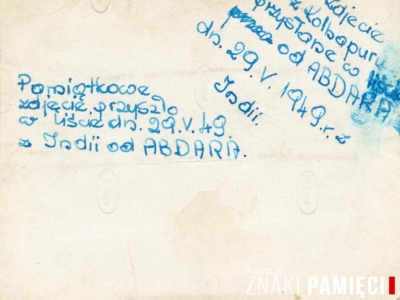 Zdjęcie
z Kolhapuru
przysłane w liście
przez od ABDARA
dn. 29.V.1949.r. z
Indii.
Pamiątkowe
zdjęcie przyszło
w liście dn. 29.V.49.
z Indii od ABDARA.
ZNAKI PAMIĘCI